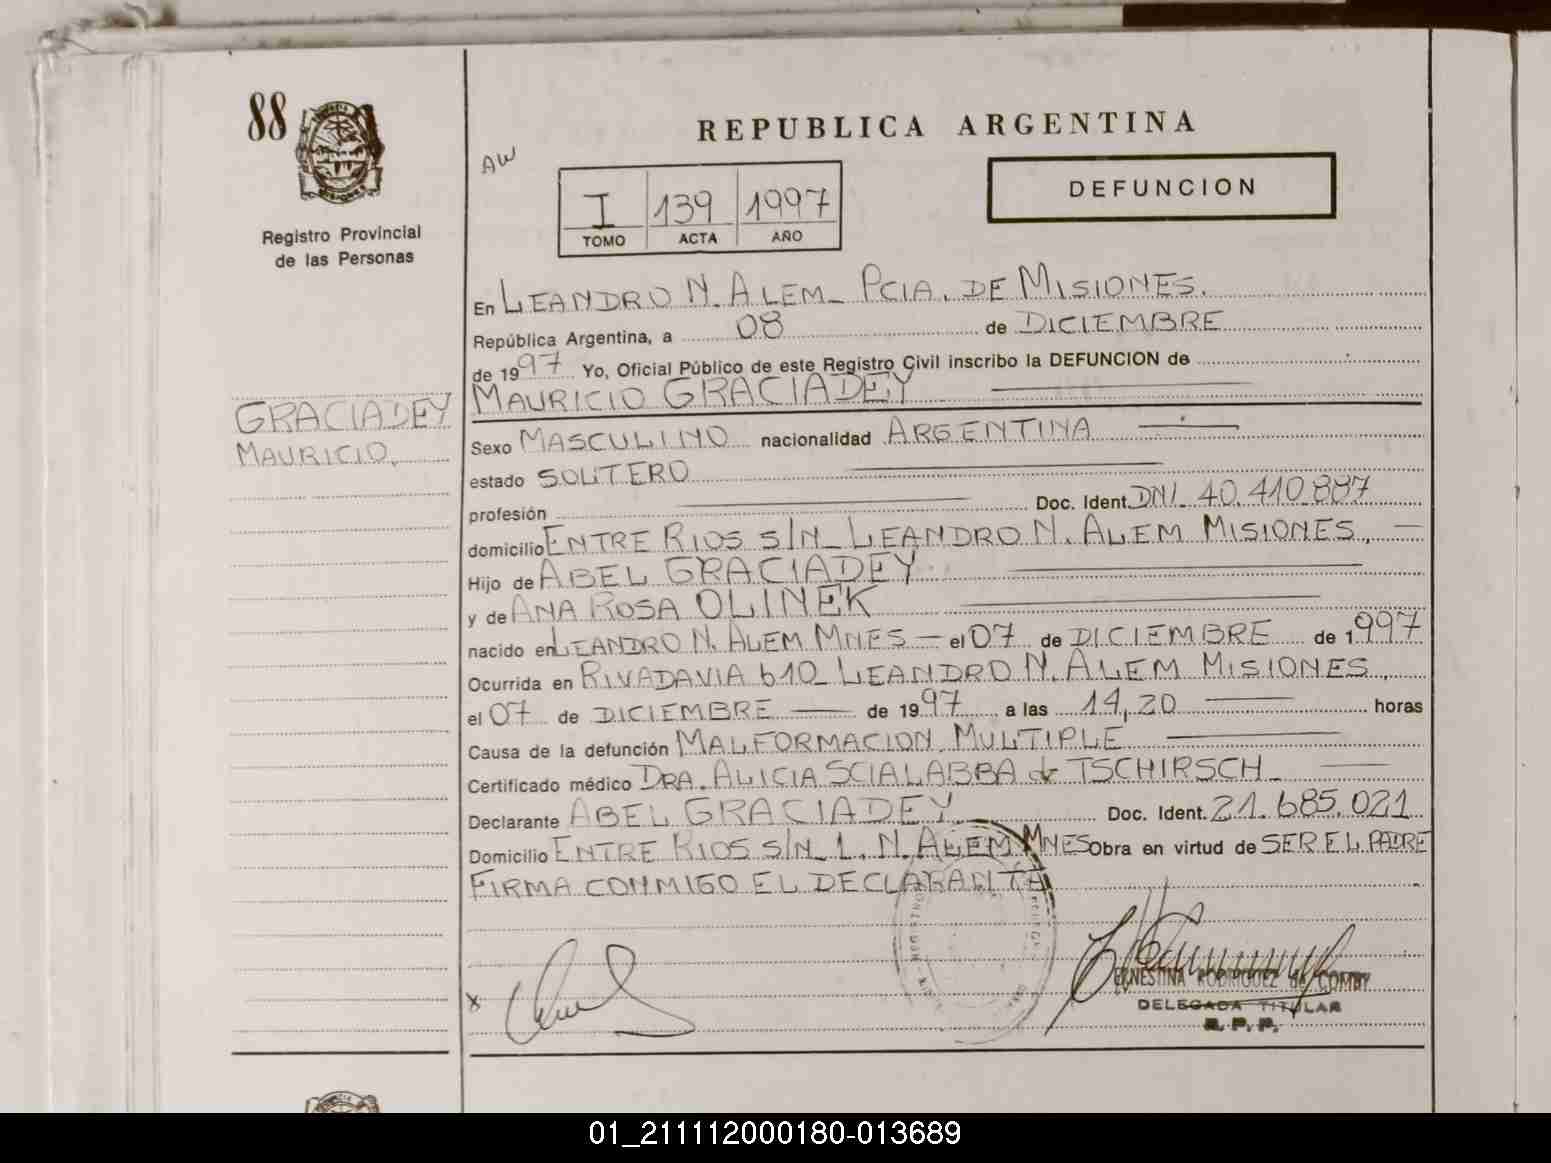 88
Registro Provincial
de las Personas
AW
REPUBLICA ARGENTINA
I 139 1997
TOMO ACTA AÑO
DEFUNCION
En LEANDRO N. ALEM_ PCIA. DE MISIONES.
República Argentina, a 08 de DICIEMBRE
de 1997 Yo, Oficial Público de este Registro Civil inscribo la DEFUNCION de
MAURICIO GRACIADEY
GRACIADEY
MAURICIO.
Sexo MASCULINO nacionalidad ARGENTINA
estado SOLTERO
profesión Doc. Ident. DNI_ 40.410.887
domicilio ENTRE RIOS S/N_ LEANDRO N. ALEM MISIONES.
Hijo de ABEL GRACIADEY
y de ANA ROSA OLINEK
nacido en LEANDRO N. ALEM MNES — el 07 de DICIEMBRE de 1997
Ocurrida en RIVADAVIA 610_ LEANDRO N. ALEM MISIONES
el 07 de DICIEMBRE — de 1997 a las 14,20 horas
Causa de la defunción MALFORMACION MULTIPLE
Certificado médico DRA. ALICIA SCIALABBA de TSCHIRSCH_
Declarante ABEL GRACIADEY Doc. Ident. 21.685.021
Domicilio ENTRE RIOS S/N_ L. N. ALEM MNES Obra en virtud de SER EL PADRE
FIRMA CONMIGO EL DECLARANTE
x
ERNESTINA RODRIGUEZ de COMBY
DELEGADA TITULAR
R. P. P.
01_211112000180-013689